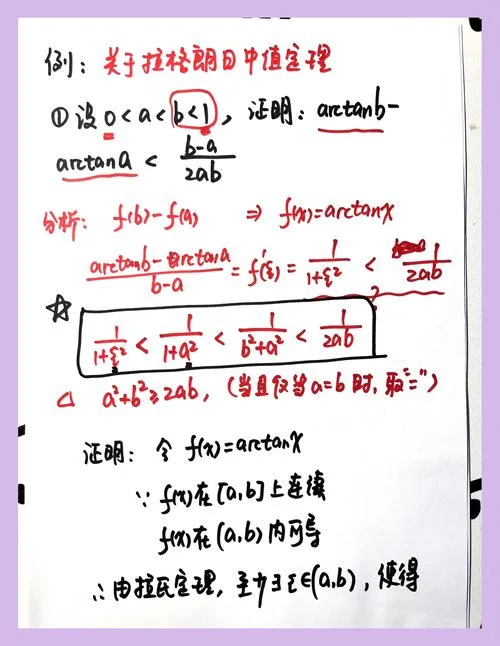 例: 关于拉格朗日中值定理
①设 0<a<b<1, 证明: arctanb-
arctana < \frac{b-a}{2ab}
分析: f(b)-f(a) ⇒ f(x)=arctanx
\frac{arctanb-arctana}{b-a} = f'(ξ) = \frac{1}{1+ξ²} < \frac{1}{2ab}
☆ \frac{1}{1+ξ²} < \frac{1}{1+a²} < \frac{1}{b²+a²} < \frac{1}{2ab}
△ a²+b²≥2ab, (当且仅当a=b时, 取"=")
证明: 令 f(x)=arctanx
∵ f(x)在[a,b]上连续
f(x)在(a,b)内可导
∴由拉氏定理, 至少∃ξ∈(a,b), 使得